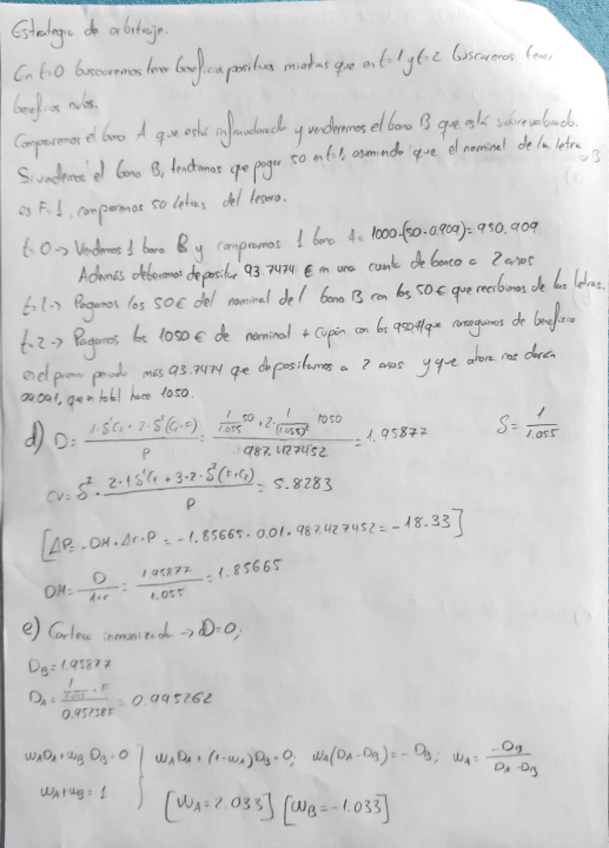 Estrategia de arbitraje.
En t=0 buscaremos tener beneficios positivos mientras que en t=1 y t=2 buscaremos tener
beneficios nulos.
Compraremos el bono A que está infravalorado y venderemos el bono B que está sobrevalorado.
Si vendemos el bono B, tendríamos que pagar 50 en t=1, asumiendo que el nominal de la letra B
es F=1, compramos 50 letras del tesoro.
t=0 → Vendemos 1 bono B y compramos 1 bono A = 1000-(50·0.909)= 950.909.
Además debemos depositar 93.7474 € en una cuenta de banco a 2 años
t=1 → Pagamos los 50€ del nominal del bono B con los 50€ que recibimos de las letras.
t=2 → Pagamos los 1050 € de nominal + cupón con los que conseguimos de beneficio
en el primer periodo más 93.7474 que depositamos a 2 años y que ahora nos darán
que en total hace 1050.
d) D = (1·δ¹C₁ + 2·δ²(C₂+F)) / P = (1/1.055 50 + 2·1/(1.055)² 1050) / 987.427452 = 1.95877 δ = 1/1.055
CV = δ²· (2·1 δ¹C₁ + 3·2·δ²(F+C₂)) / P = 5.8283
[ΔP = -DM·Δr·P = -1.85665·0.01·987.427452 = -18.33]
DM = D/(1+r) = 1.95877/1.055 = 1.85665
e) Cartera inmunizada → D=0;
D_B = 1.95877
D_A = = 0.995262
w_A D_A + w_B D_B = 0 } w_A D_A + (1-w_A) D_B = 0; w_A(D_A - D_B) = -D_B; w_A = -D_B/(D_A - D_B)
w_A + w_B = 1
[w_A = 2.033] [w_B = -1.033]